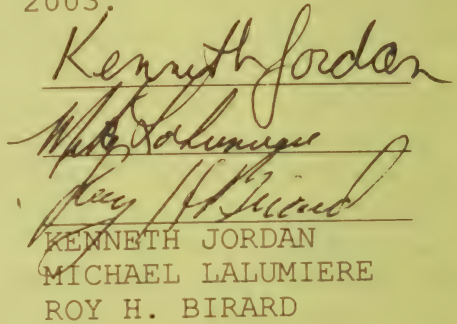 2003.
Kenneth Jordan
Mike Lalumiere
Roy H Birard
KENNETH JORDAN
MICHAEL LALUMIERE
ROY H. BIRARD